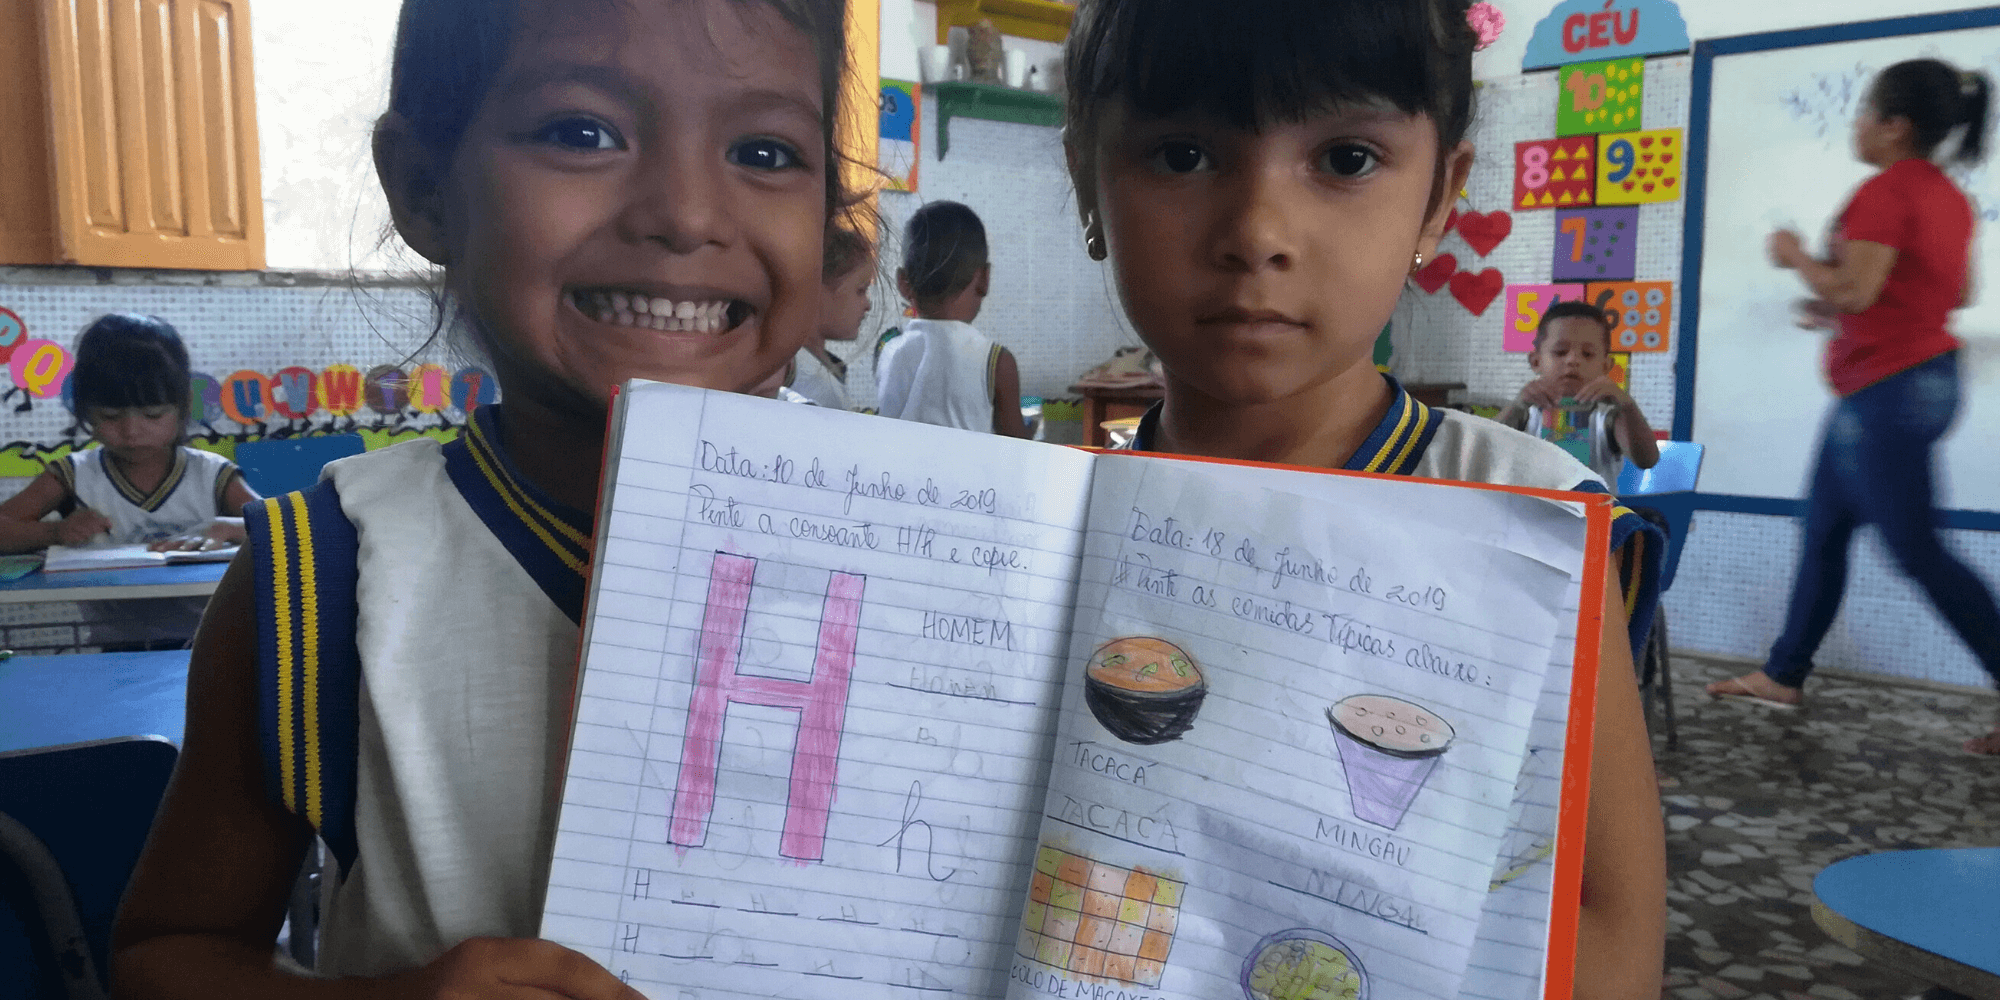 CÉU
10
8
9
7
5
6
Q
U V W X Y Z
Data: 10 de Junho de 2019
Pinte a consoante H/h e copie.
H
HOMEM
Homem
h
H H H H H
H H
Data: 18 de Junho de 2019
# Pinte as comidas Típicas abaixo:
TACACÁ
TACACÁ
MINGAU
NINGAU
BOLO DE MACAXE